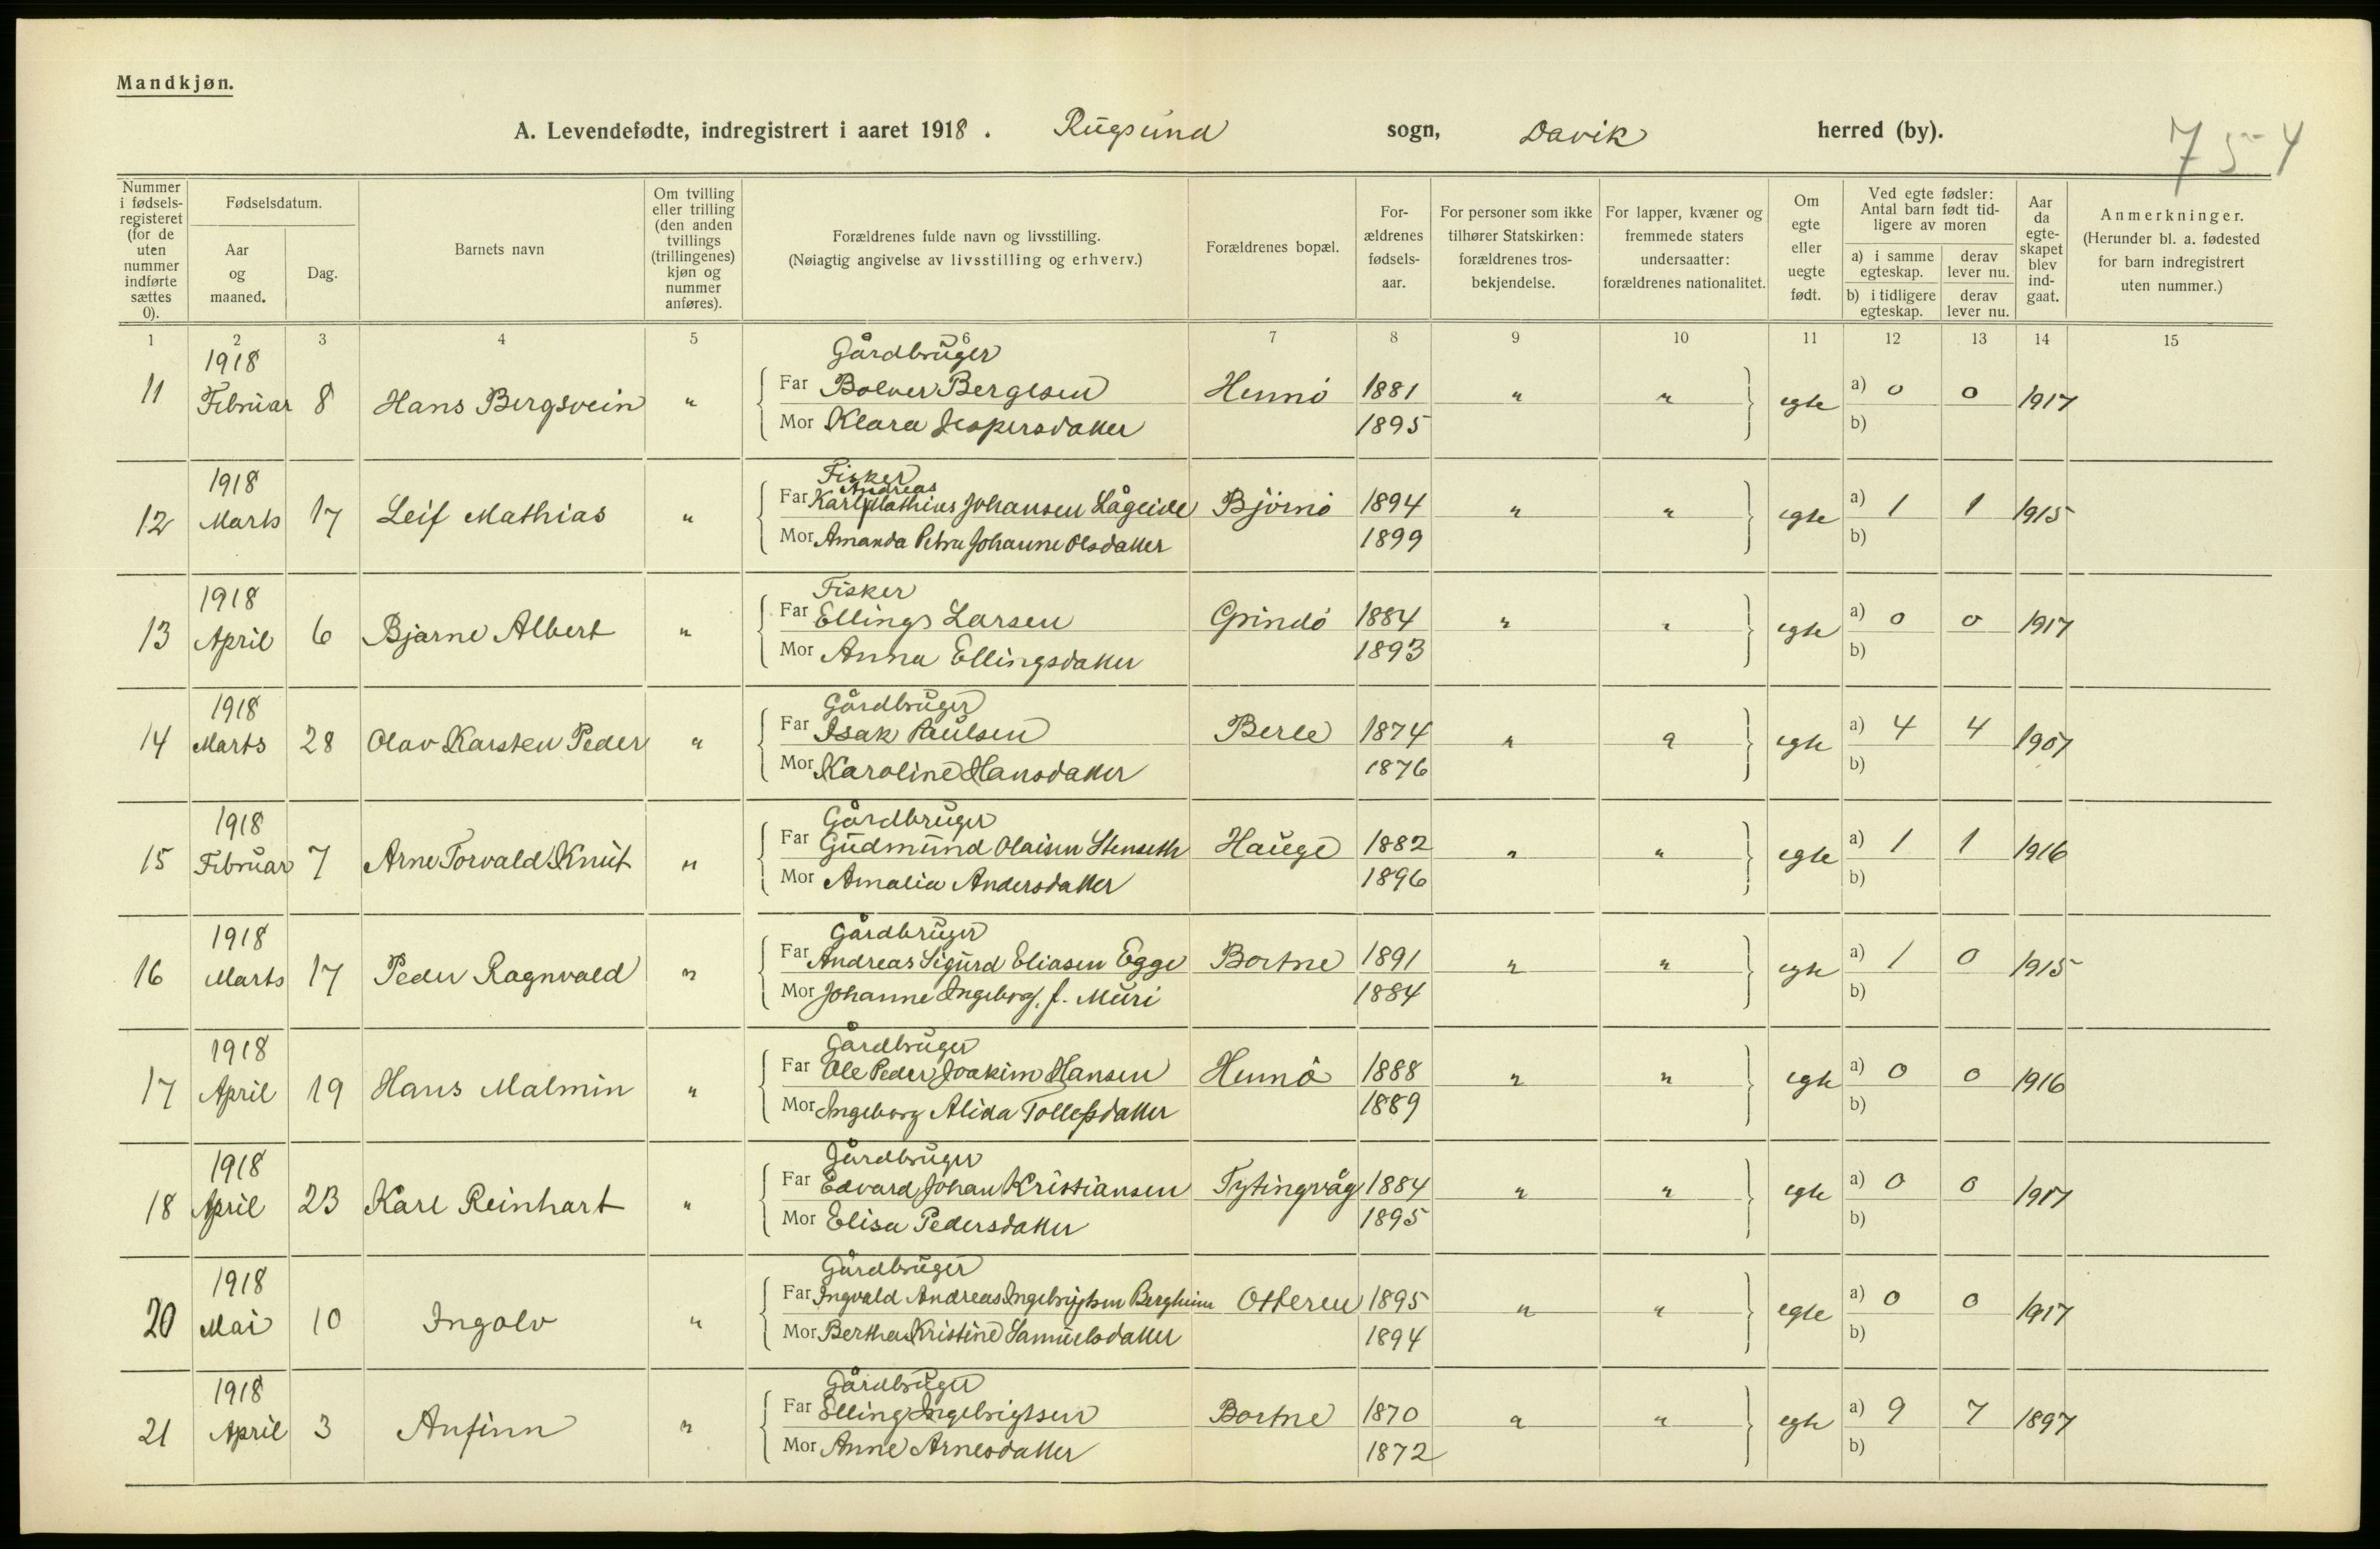 Mandkjøn.
A. Levendefødte, indregistrert i aaret 1918. Rugsund sogn, Davik herred (by).
754
Nummer i fødsels-registeret (for de uten nummer indførte sættes 0).
Fødselsdatum.
Aar og maaned.
Dag.
Barnets navn
Om tvilling eller trilling (den anden tvillings (trillingenes) kjøn og nummer anføres).
Forældrenes fulde navn og livsstilling.
(Nøiagtig angivelse av livsstilling og erhverv.)
Forældrenes bopæl.
For-ældrenes fødsels-aar.
For personer som ikke tilhører Statskirken: forældrenes tros-bekjendelse.
For lapper, kvæner og fremmede staters undersaatter: forældrenes nationalitet.
Om egte eller uegte født.
Ved egte fødsler: Antal barn født tid-ligere av moren
a) i samme egteskap.
derav lever nu.
b) i tidligere egteskap.
derav lever nu.
Aar da egte-skapet blev ind-gaat.
Anmerkninger.
(Herunder bl. a. fødested for barn indregistrert uten nummer.)
1 2 3 4 5 6 7 8 9 10 11 12 13 14 15
1918 Gårdbruger
11 Februar 8 Hans Bergsvein " Far Bolver Berglsen Hennö 1881 " " egte a) 0 0 1917
Mor Klara Jespersdatter 1895 b)
1918 Fisker
Andreas
12 Marts 17 Leif Mathias " Far Karl Mathias Johansen Lågeide Björnö 1894 " " egte a) 1 1 1915
Mor Amanda Petra Johanne Olsdatter 1899 b)
1918 Fisker
13 April 6 Bjarne Albert " Far Ellings Larsen Grindö 1884 " " egte a) 0 0 1917
Mor Anna Ellingsdatter 1893 b)
1918 Gårdbruger
14 Marts 28 Olav Karsten Peder " Far Isak Paulsen Berle 1874 " " egte a) 4 4 1907
Mor Karoline Hansdatter 1876 b)
1918 Gårdbruger
15 Februar 7 Arne Torvald Knut " Far Gudmund Olaisen Stenseth Hauge 1882 " " egte a) 1 1 1916
Mor Amalia Andersdatter 1896 b)
1918 Gårdbruger
16 Marts 17 Peder Ragnvald " Far Andreas Sigurd Eliasen Egge Bortne 1891 " " egte a) 1 0 1915
Mor Johanne Ingeborg, f. Muri 1884 b)
1918 Gårdbruger
17 April 19 Hans Malmin " Far Ole Peder Joakim Hansen Hennö 1888 " " egte a) 0 0 1916
Mor Ingeborg Alida Tollefsdatter 1889 b)
1918 Gårdbruger
18 April 23 Karl Reinhart " Far Edvard Johan Kristiansen Tytingvåg 1884 " " egte a) 0 0 1917
Mor Elisa Pedersdatter 1895 b)
1918 Gårdbruger
20 Mai 10 Ingolv " Far Ingvald Andreas Ingebrigtsen Bergheim Otteren 1895 " " egte a) 0 0 1917
Mor Bertha Kristine Samuelsdatter 1894 b)
1918 Gårdbruger
21 April 3 Anfinn " Far Elling Ingebrigtsen Bortne 1870 " " egte a) 9 7 1897
Mor Anne Arnesdatter 1872 b)